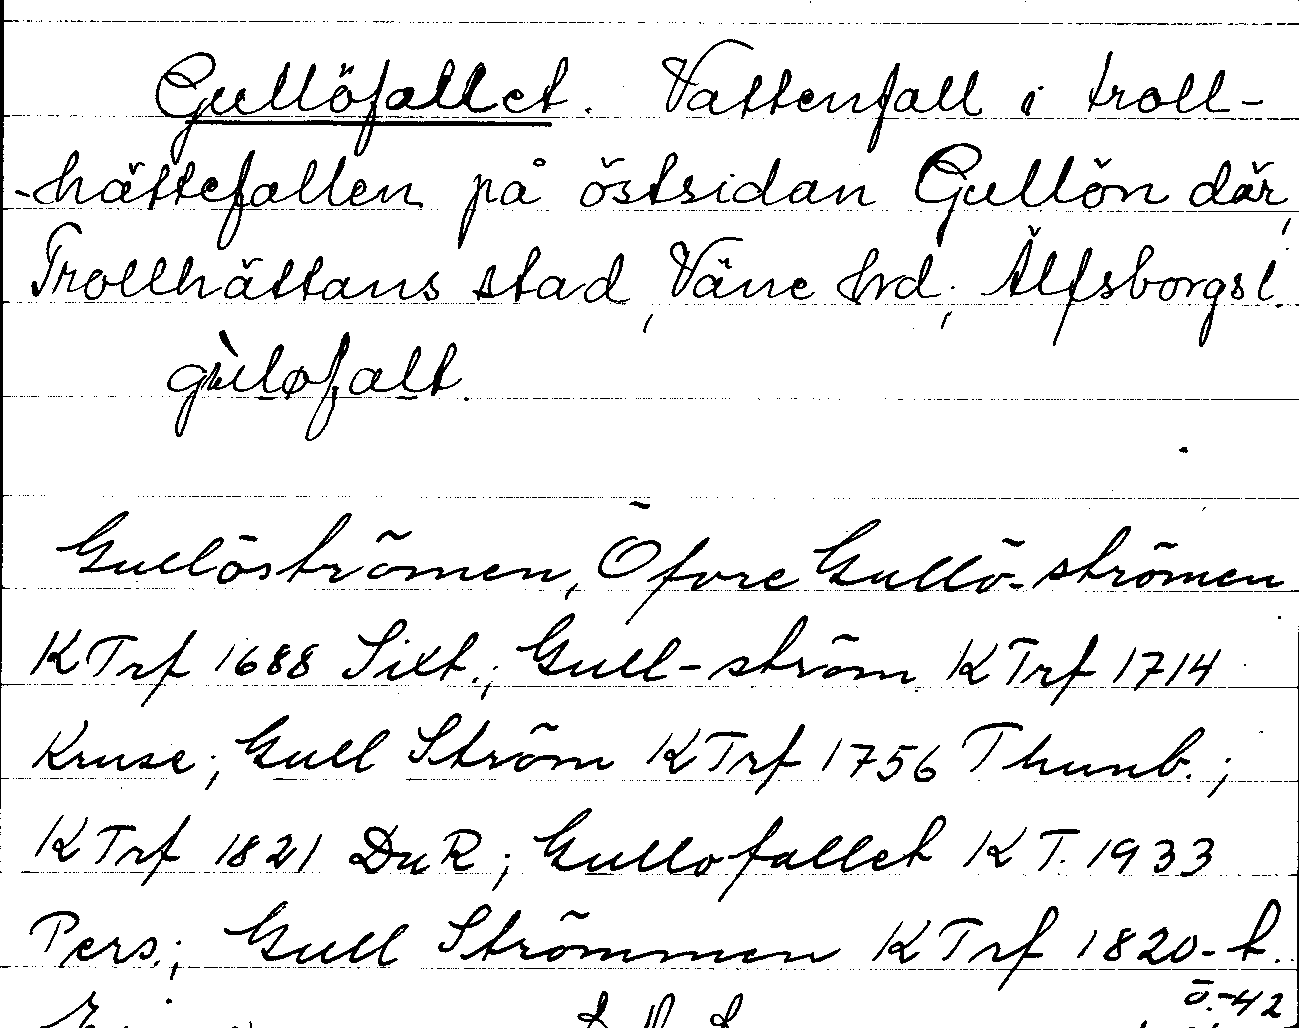 Gullöfallet. Vattenfall i troll-
-hättefallen på östsidan Gullön där,
Trollhättans stad, Väne hrd, Älfsborgs l.
gùlofalt.
Gullöströmen, Öfvre Gullö-strömen
KTrf 1688 Sixt.; Gull-ström KTrf 1714
Kruse; Gull Ström KTrf 1756 Thunb.;
KTrf 1821 DuR; Gullofallet KT. 1933
Pers.; Gull Strömmen KTrf 1820-t.
ö.-42